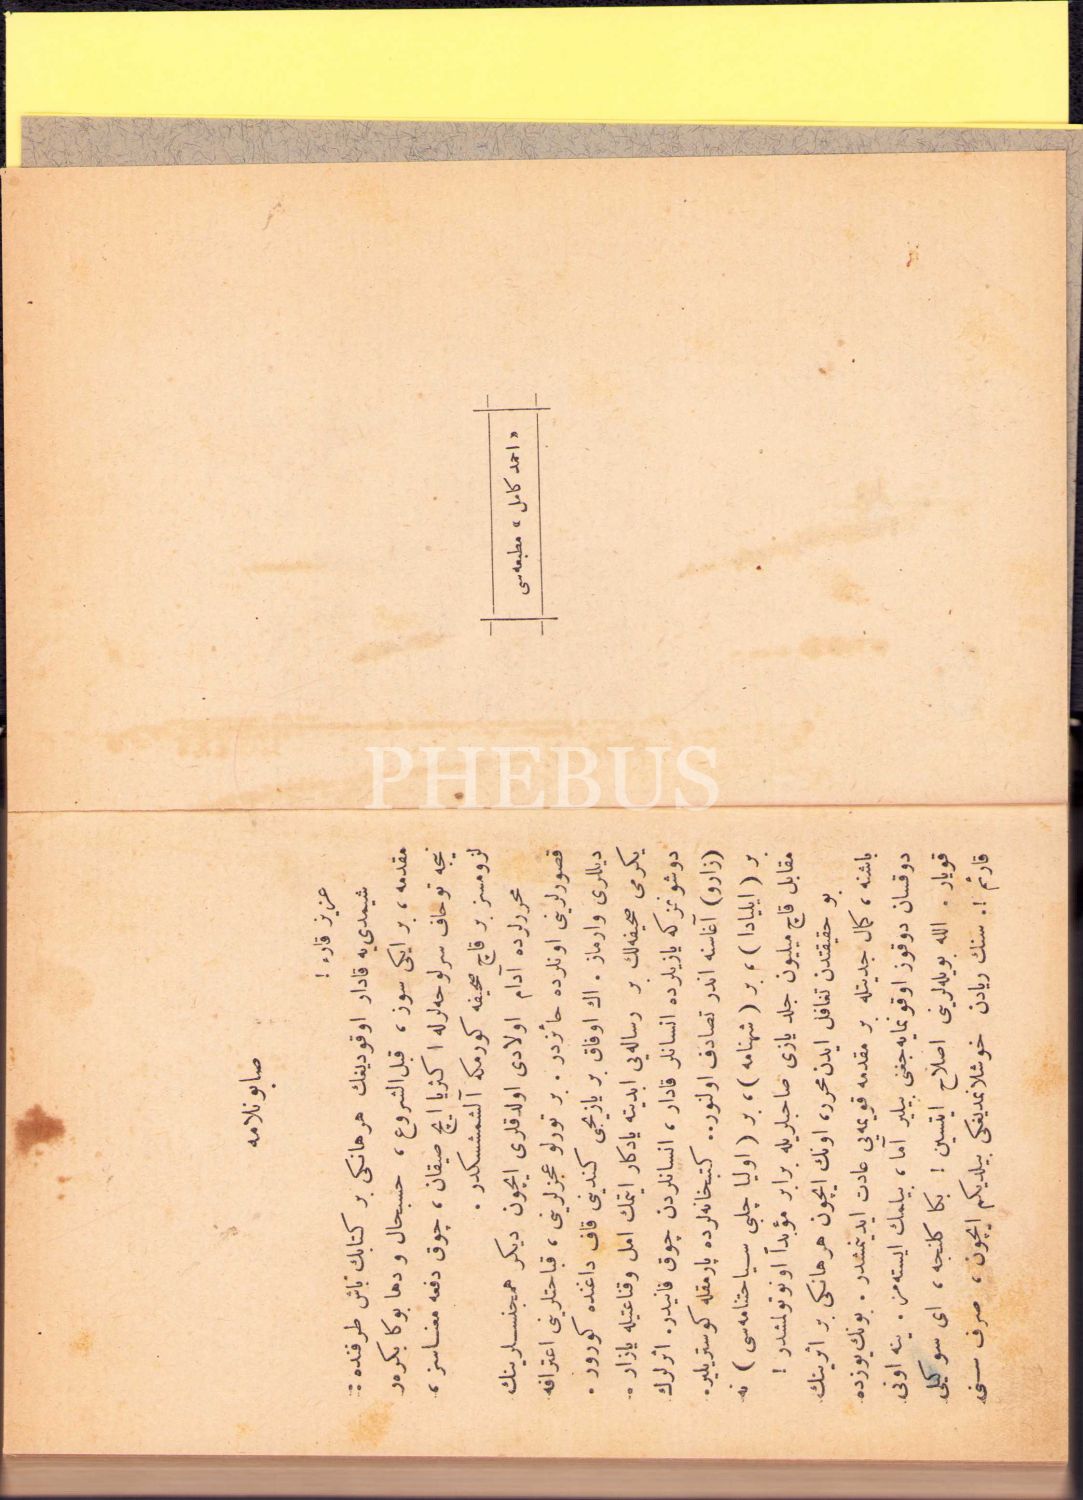 « احمد كامل » مطبعه‌سی
صابونلامه
عزیز قارء !
شیمدی‌یه قادار اوقودیغك هرهانكی بر كتابك باش طرفنده :
مقدمه ، بر ایكی سوز ، قبل‌الشروع ، حسبحال و دها بوكا بكزه‌ر
نیجه توحاف سرلوحه‌لرله اكثریا ایچ صیقان ، چوق دفعه معناسز ،
لزومسز بر قاچ صحیفه كورمكه آلشمشسكدر .
محررلرده آدام اولادی اولدقلری ایچون دیكر همجنسلرینك
قصورلرینی اونلرده حائزدر . بر تورلو عجزلرینی ، قباحتلرینی اعترافه
دیللری وارماز . اك اوفاق بر یازیجی كندینی قاف داغنده كورور .
یكرمی صحیفه‌لك بر رساله‌یی ابدیته یادكار ایتمك امل وقناعتیله یازار .
دوشونمز كه یازیلرده انسانلر قادار ، انسانلردن چوق فانیدر. اثرلرك
(زارو) آغاسنه اندر تصادف اولنور.. كتبخانه‌لرده پارمقله كوستریلیر.
بر ( ایلیادا ) ، بر ( شهنامه ) ، بر ( اولیا چلبی سیاحتنامه‌سی ) نه
مقابل قاچ میلیون جلد یازی صاحبلریله برابر مؤبداً اونوتولمشدر !
بو حقیقتدن تغافل ایدن محرر، اونك ایچون هرهانكی بر اثرینك
باشنه ، كمال جدیتله بر مقدمه قویمه‌یی عادت ایدینمشدر . بونك‌یوزده
دوقسان دوقوز اوقونمایه‌جغنی بیلیر آما ، بیلمك ایسته‌مز . ینه اونی
قویار . الله بویله‌لرینی اصلاح ایتسین ! بكا كلنجه ، ای سوكیلی
قارئم !. سنك ریادن خوشلانمدیغكی بیلدیكم ایچون ، صرف سنی
PHEBUS